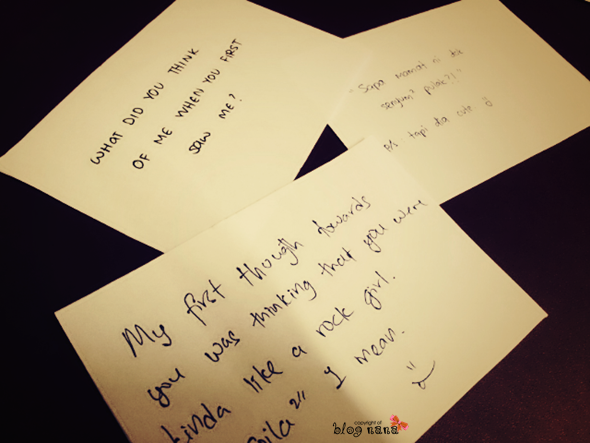 WHAT DID YOU THINK
OF ME WHEN YOU FIRST
SAW ME?
"Sapa mamat ni da
senyum" pulak?!"
tapi da cute :)
My first though towards
you was thinking that you were
kinda like a rock girl.
I mean.
copyright of
blog nana